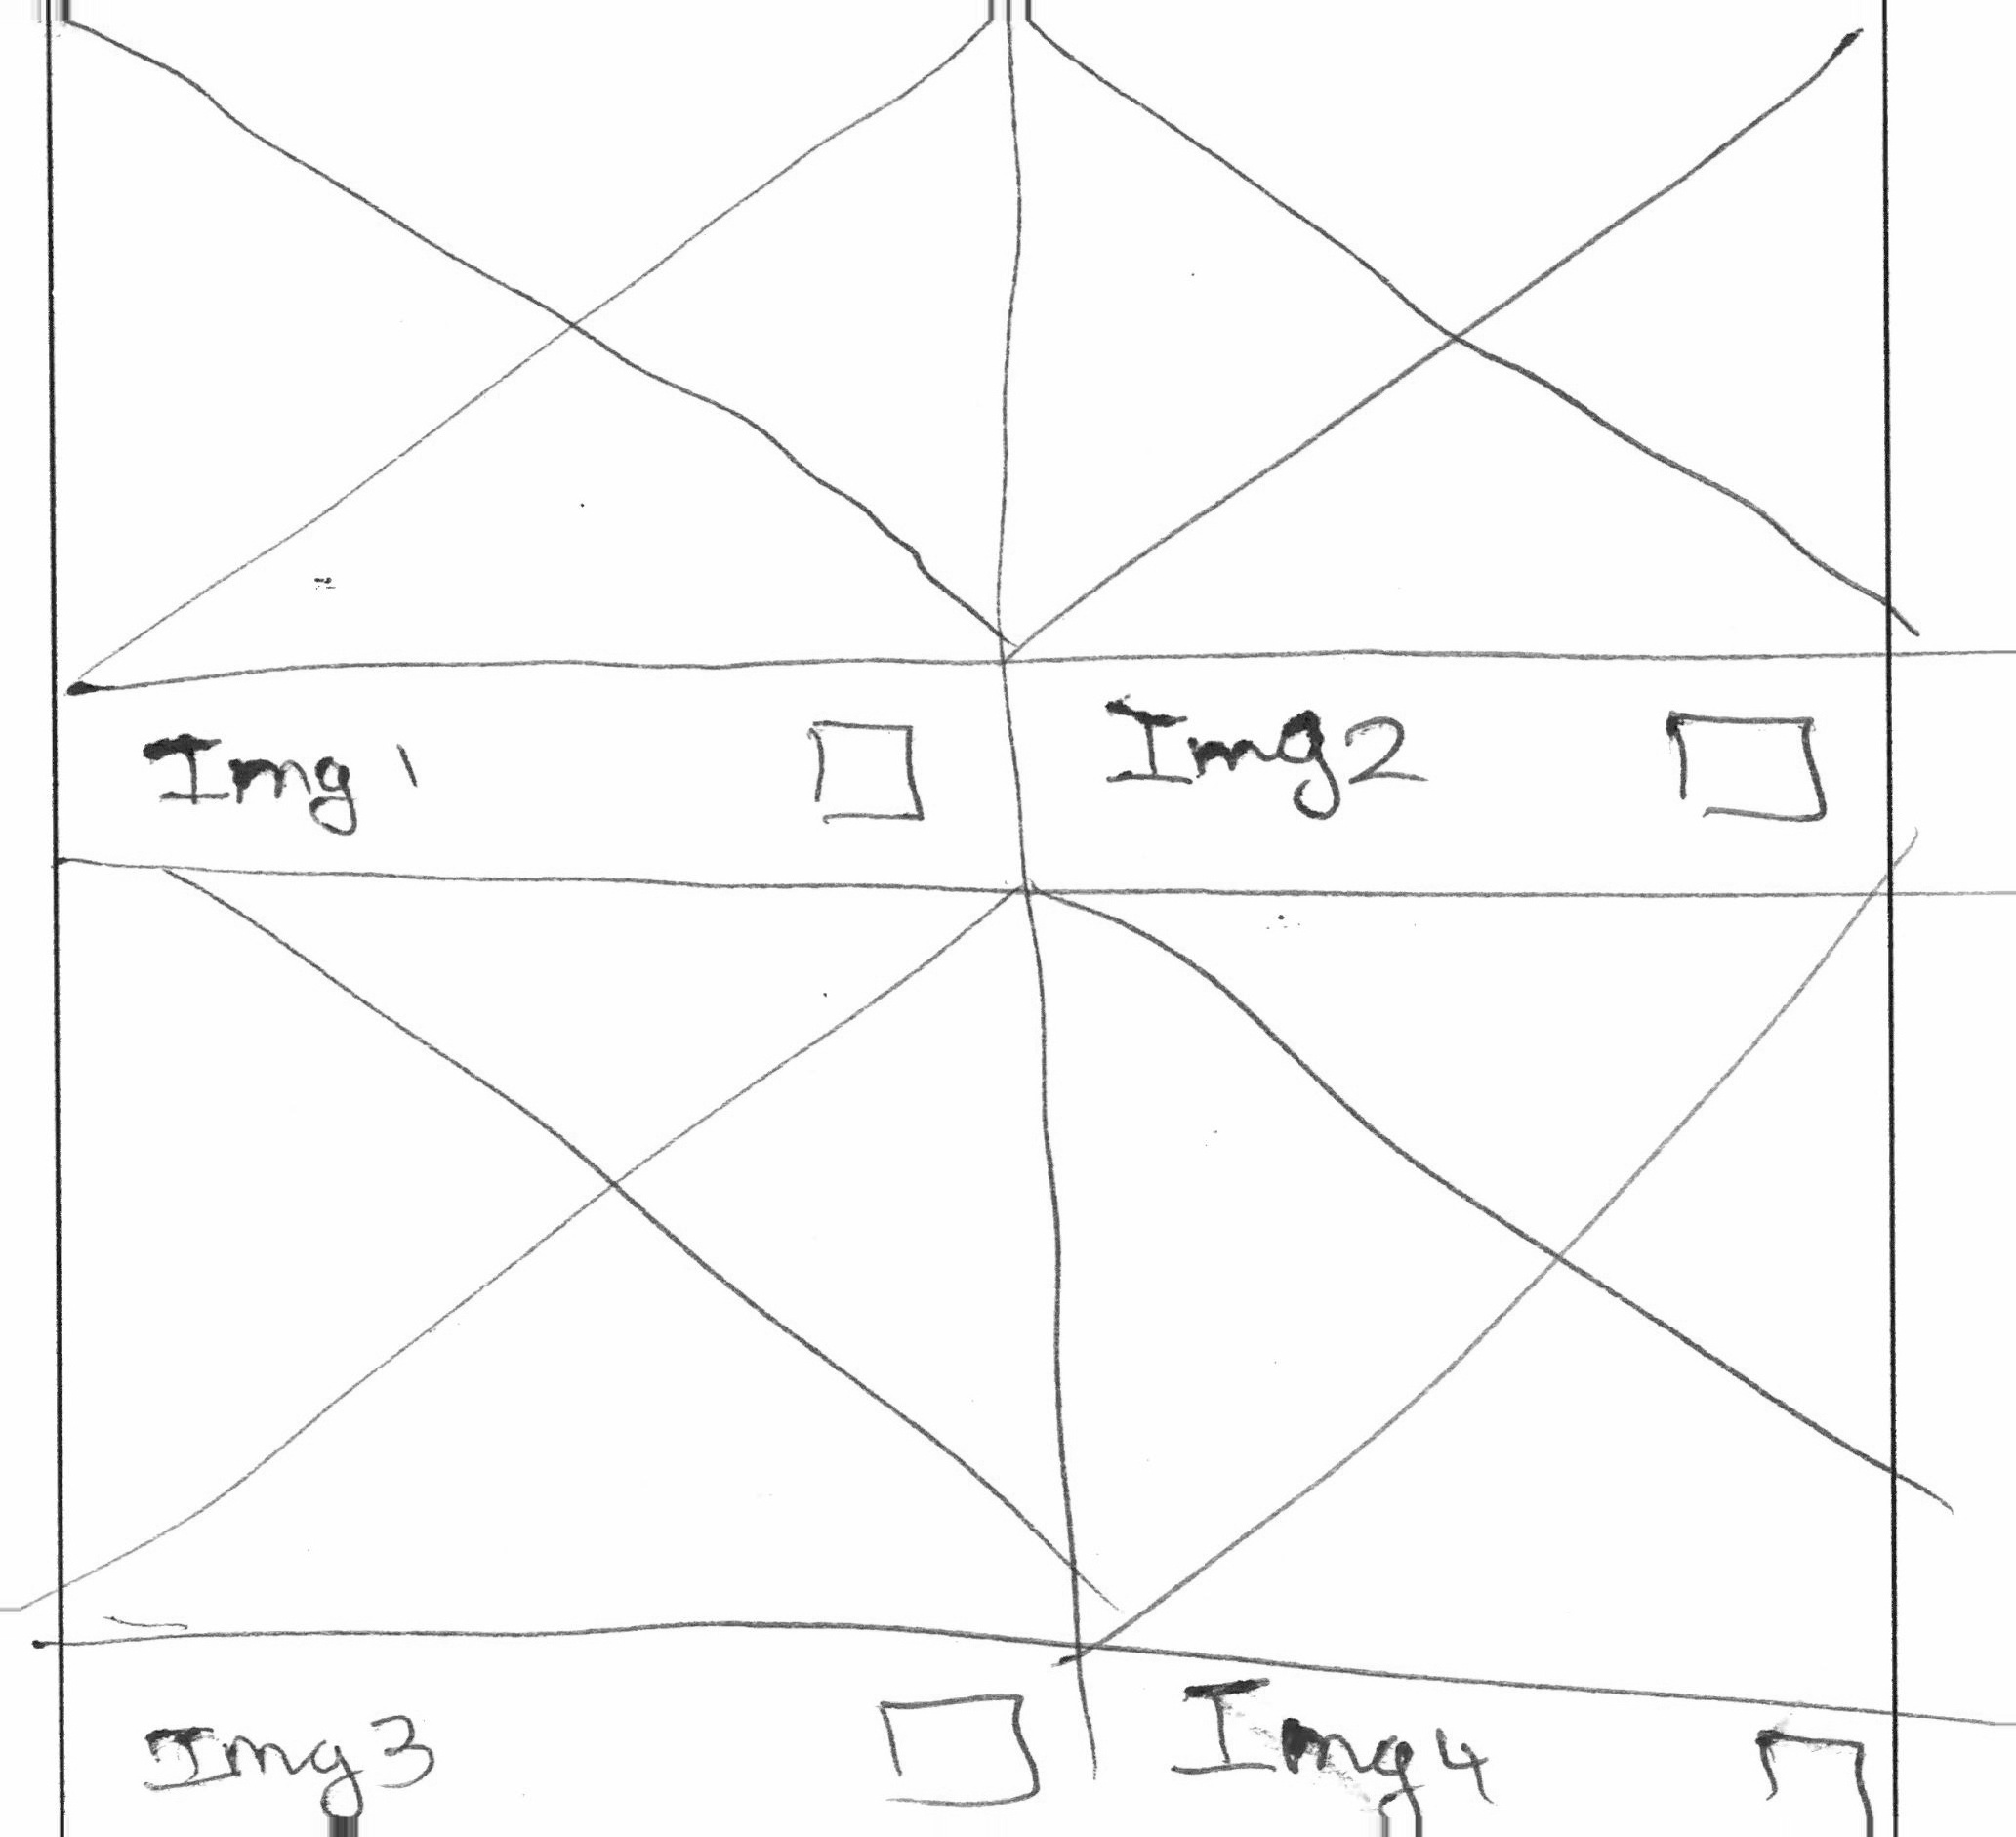 Img 1
Img2
Img3
Img4